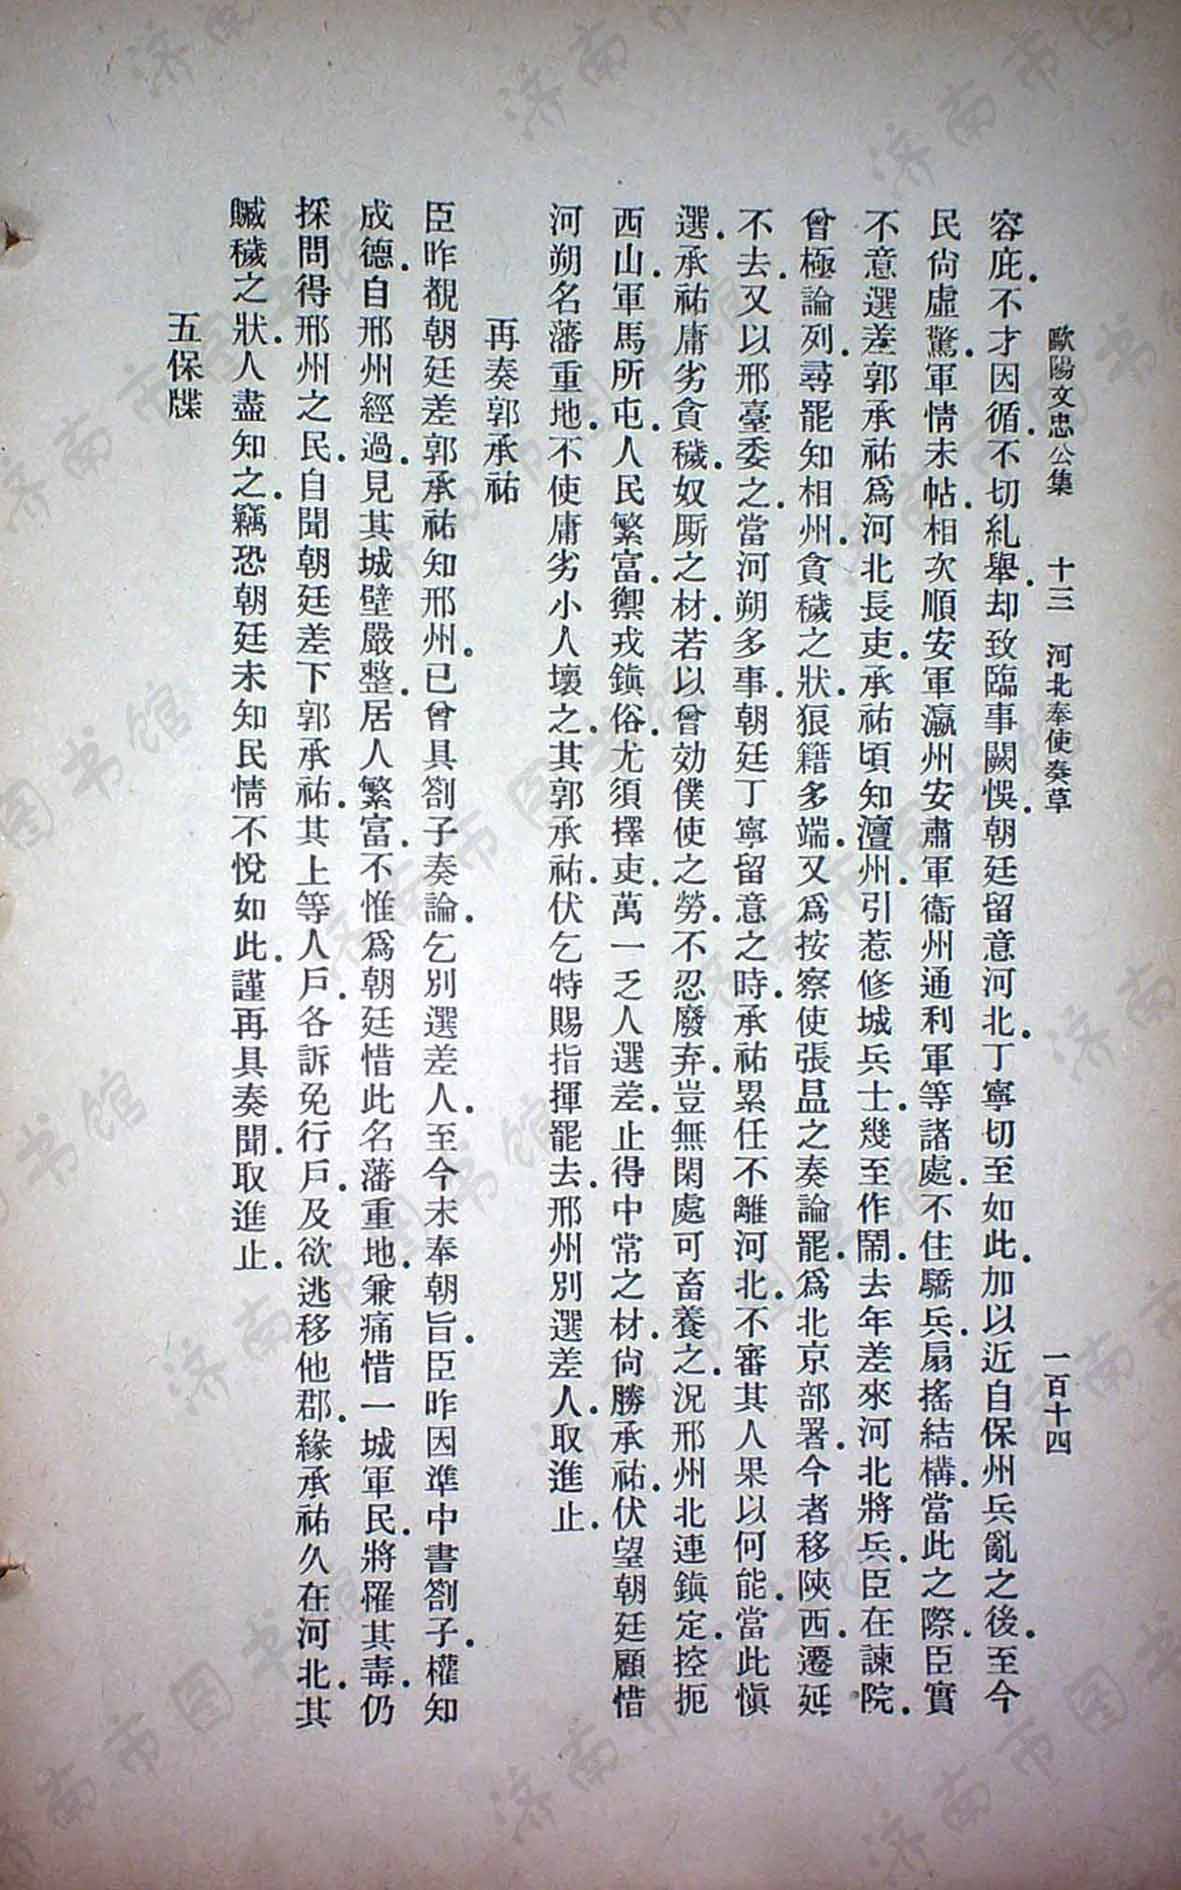 歐陽文忠公集　十三　河北奉使奏草　一百十四
容庇．不才因循．不切糺舉．却致臨事闕悞．朝廷留意河北．丁寧切至如此．加以近自保州兵亂之後．至今
民尙虛驚．軍情未帖．相次順安軍瀛州安肅軍衞州通利軍等諸處．不住驕兵．扇搖結構．當此之際．臣實
不意選差郭承祐爲河北長吏．承祐頃知澶州．引惹修城兵士．幾至作鬧．去年差來河北將兵．臣在諫院．
曾極論列．尋罷知相州．貪穢之狀．狼籍多端．又爲按察使張昷之奏論罷．爲北京部署．今者移陝西．遷延
不去．又以邢臺委之．當河朔多事．朝廷丁寧留意之時．承祐累任不離河北．不審其人果以何能．當此愼
選．承祐庸劣貪穢．奴厮之材．若以曾効僕使之勞．不忍廢弃．豈無閑處可畜養之．況邢州北連鎭定．控扼
西山．軍馬所屯．人民繁富．禦戎鎭俗．尤須擇吏．萬一乏人選差．止得中常之材．尙勝承祐．伏望朝廷顧惜
河朔名藩重地．不使庸劣小人壞之．其郭承祐．伏乞特賜指揮罷去．邢州別選差人．取進止．
再奏郭承祐
臣昨覩朝廷差郭承祐知邢州。已曾具劄子奏論．乞別選差人．至今未奉朝旨．臣昨因準中書劄子．權知
成德．自邢州經過．見其城壁嚴整．居人繁富．不惟爲朝廷惜此名藩重地．兼痛惜一城軍民．將罹其毒．仍
採問得邢州之民．自聞朝廷差下郭承祐．其上等人戶．各訴免行戶．及欲逃移他郡．緣承祐久在河北．其
贓穢之狀．人盡知之．竊恐朝廷未知民情不悅如此．謹再具奏聞．取進止．
五保牒
济南市图书馆